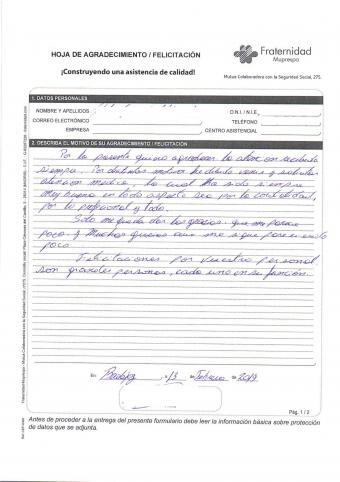 HOJA DE AGRADECIMIENTO / FELICITACIÓN
¡Construyendo una asistencia de calidad!
Fraternidad
Muprespa
Mutua Colaboradora con la Seguridad Social, 275.
1. DATOS PERSONALES
NOMBRE Y APELLIDOS
D.N.I. / N.I.E.
CORREO ELECTRÓNICO
TELÉFONO
EMPRESA
CENTRO ASISTENCIAL
2. DESCRIBA EL MOTIVO DE SU AGRADECIMIENTO / FELICITACIÓN
Por la presente quiero agradecer la atención recibida
siempre. Por distintos motivos he debido venir y solicitar
atención médica la cual ha sido siempre
muy buena en todo aspecto sea por la cordialidad,
por lo profesional y todo.
Solo me queda dar las gracias que me parece
poco. y Muchas gracias aun me sigue pareciendo
poco.
Felicitaciones por vuestro personal
son grandes personas, cada uno en su función.
En Badajoz, a 13 de Febrero de 2019
Pág. 1 / 2
Antes de proceder a la entrega del presente formulario debe leer la información básica sobre protección
de datos que se adjunta.